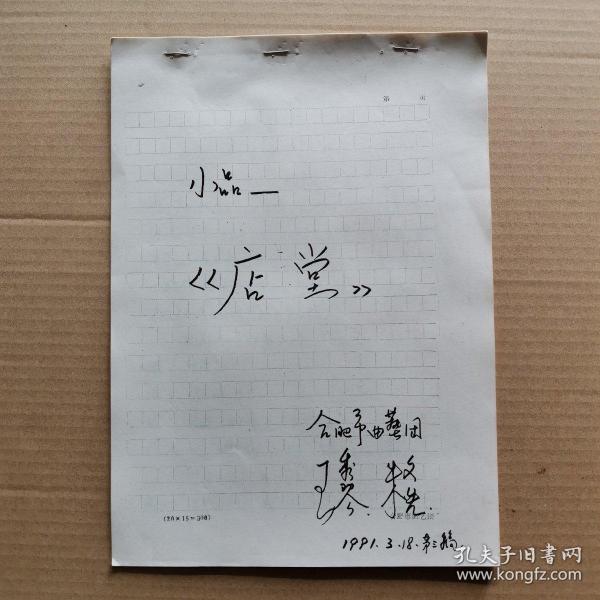 第 页
小品—
《店堂》
合肥市曲艺团
1991.3.18.第三稿
(20×15=300)
孔夫子旧书网
www.kongfz.com